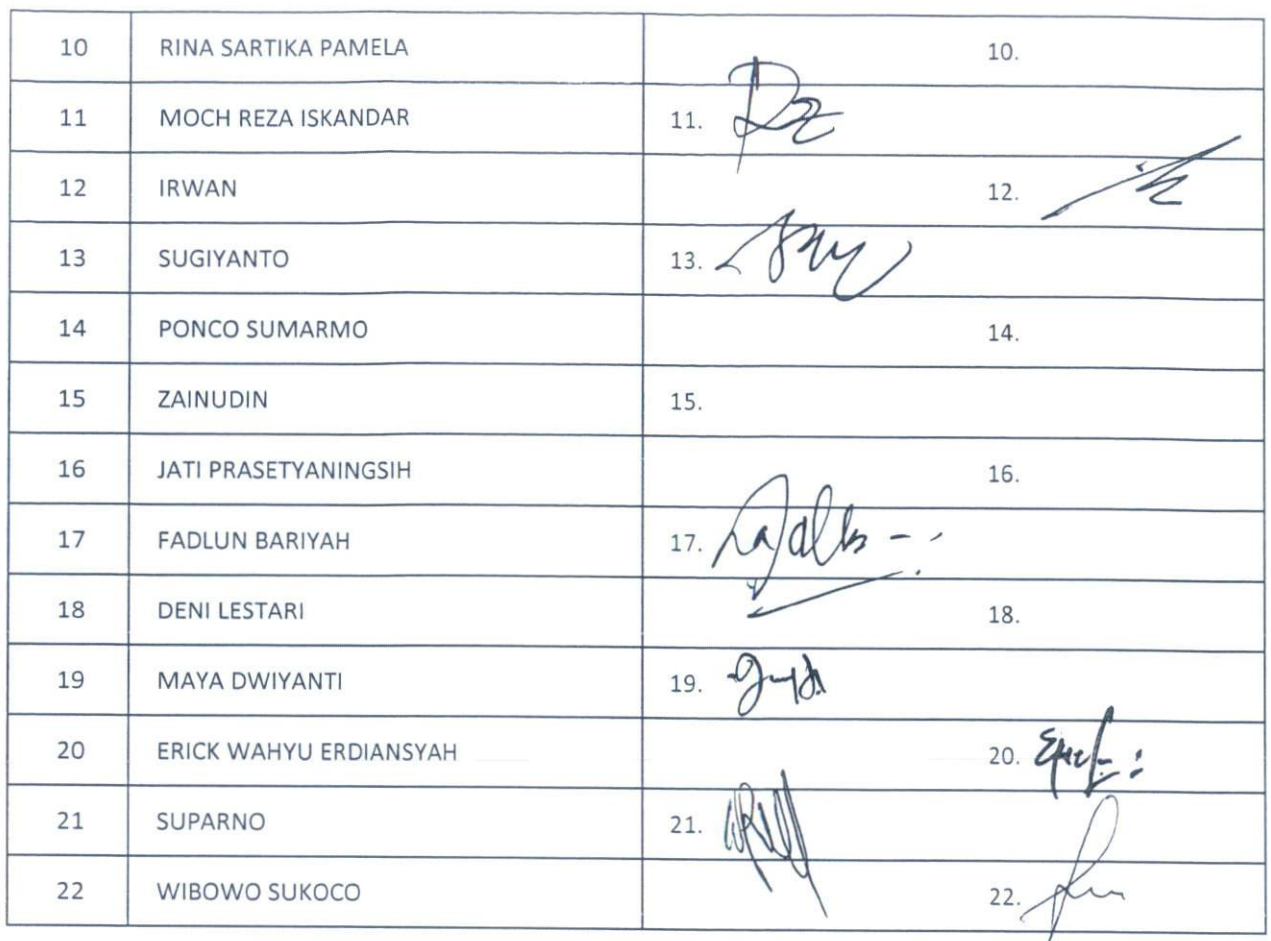 10 RINA SARTIKA PAMELA 10.
11 MOCH REZA ISKANDAR 11.
12 IRWAN 12.
13 SUGIYANTO 13.
14 PONCO SUMARMO 14.
15 ZAINUDIN 15.
16 JATI PRASETYANINGSIH 16.
17 FADLUN BARIYAH 17.
18 DENI LESTARI 18.
19 MAYA DWIYANTI 19.
20 ERICK WAHYU ERDIANSYAH 20.
21 SUPARNO 21.
22 WIBOWO SUKOCO 22.